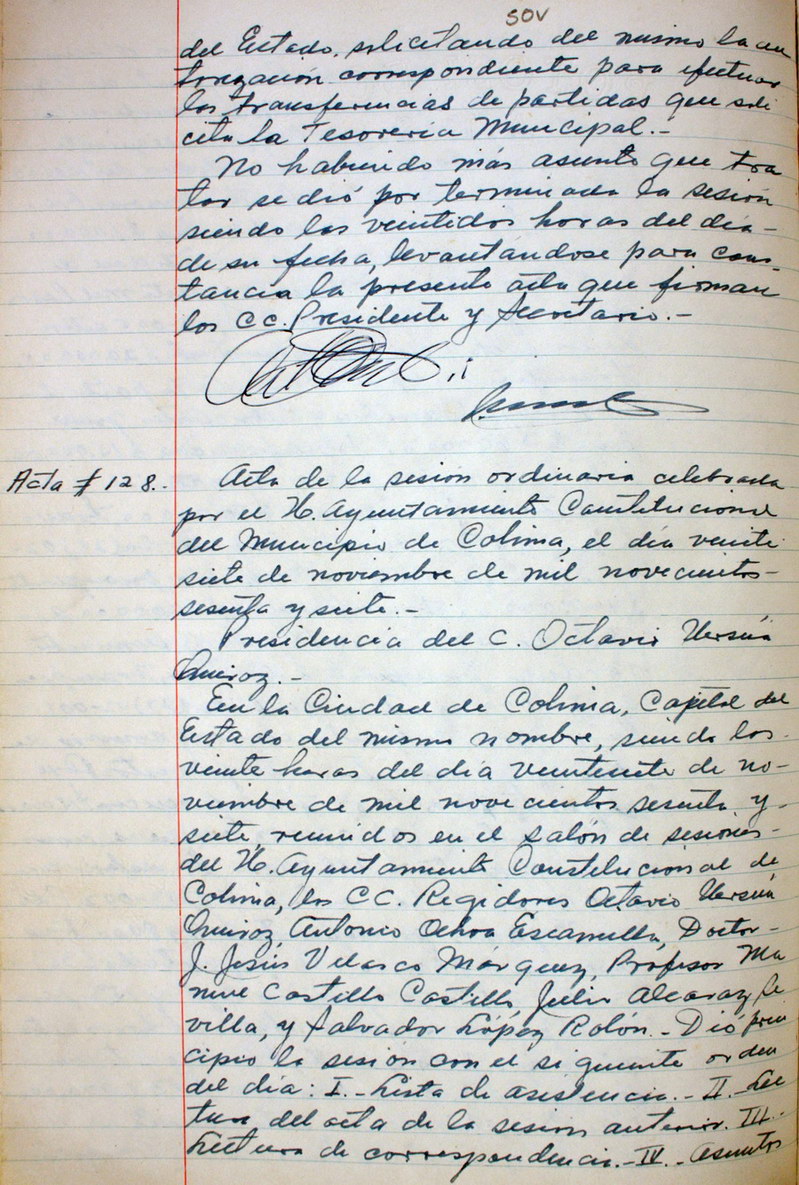 SOV
del Estado, solicitando del mismo la au
torización correspondiente para efectuar
las transferencias de partidas que soli
cita la Tesorería Municipal.-
No habiendo más asunto que tra
tar se dió por terminada la sesión
siendo las veintidos horas del día-
de su fecha, levantándose para cons-
tancia la presente acta que firman
los CC. Presidente y Secretario.-
Acta # 128.-
Acta de la sesión ordinaria celebrada
por el H. Ayuntamiento Constitucional
del Municipio de Colima, el día veinti
siete de noviembre de mil novecientos-
sesenta y siete.-
Presidencia del C. Octavio Ursúa
Quiroz.-
En la Ciudad de Colima, Capital del
Estado del mismo nombre, siendo las-
veinte horas del día veintisiete de no-
viembre de mil novecientos sesenta y-
siete, reunidos en el salón de sesiones-
del H. Ayuntamiento Constitucional de
Colima, los CC. Regidores Octavio Ursúa
Quiroz, Antonio Ochoa Escamilla, Doctor-
J. Jesús Velasco Márquez, Profesor Ma
nuel Castillo Castillo, Julio Alcaraz Se
villa, y Salvador López Rolón.- Dió prin
cipio la sesión con el siguiente orden
del día: I.- Lista de asistencia.- II.- Lec
tura del acta de la sesion anterior. III.-
Lectura de correspondencia.- IV.- Asuntos